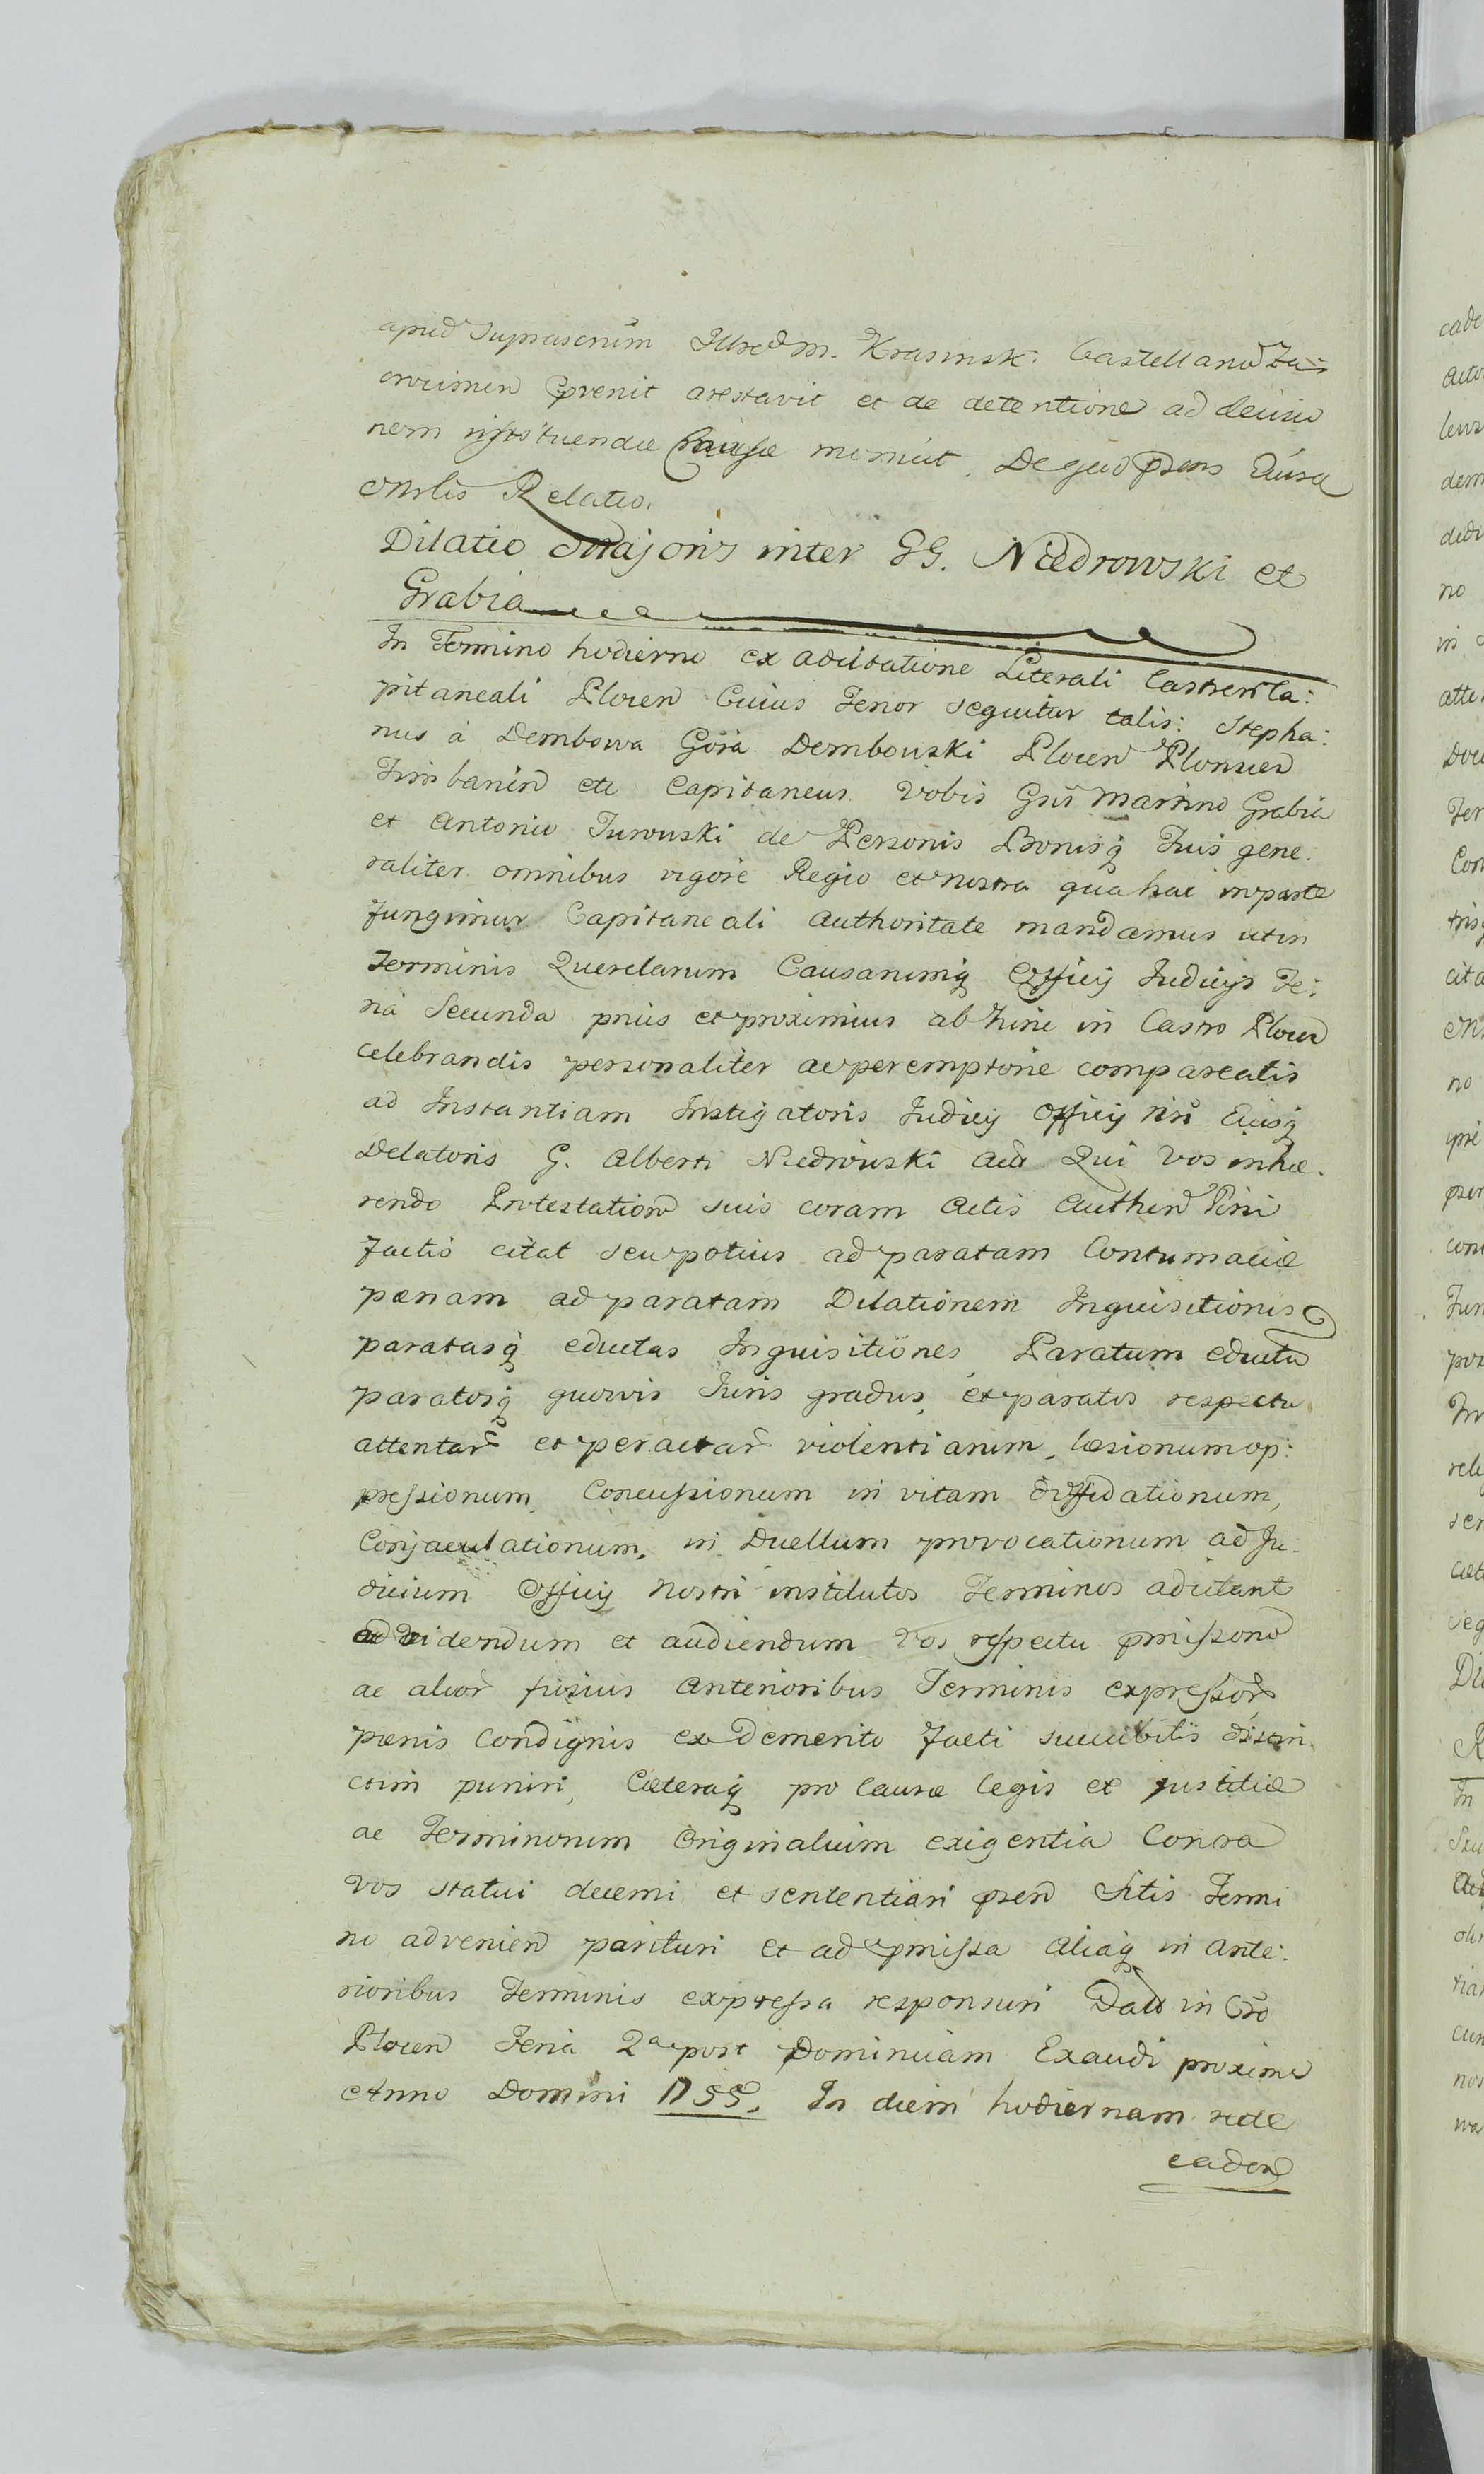 apud Suprascrim Illredm. Krasinsk. Castellanū Za:
crocimen Pvenit arestavit et de detentione ad decisio
nem instituendæ Causæ monuit. De quo Psens Eiusd
Mrlis Relatio.
Dilatio Majoris inter GG. Niedrowski et
Grabia
In Termino hodierno ex adcitatione Literali Castren Ca:
pitaneali Plocen Cuius Tenor sequitur talis: Stepha:
nus à Dembowa Góra Dembowski Plocen Plonscen
etc Capitaneus Vobis Gsis Martino Grabia
et Antonio Turowski de Personis Bonisq Tuis gene:
raliter omnibus vigore Regio et nostra qua hac in parte
fungimur Capitaneali Authoritate mandamus ut in
Terminis Querelarum Causarumq Officij Judicijs Fe:
ria Secunda prius et proximius ab hinc in Castro Plocen
celebrandis personaliter ac peremptorie compareatis
ad Instantiam Instigatoris Judicij Officij nri Eiusq
Delatoris G. Alberti Niedrowski Acta Qui Vos inhæ:
rendo Protestation suis coram Actis Authen
factis citat seu potius ad paratam Contumaciæ
pænam ad paratam Dilationem Inquisitionis
paratasq eductas Inquisitiones Paratum eductu
paratosq quovis Juris gradus, et paratos respectu
attentar et peractar violentiarum, læsionum op:
pressionum, Concussionum in vitam diffidationum,
Conjaculationum, in Duellum provocationum ad Ju:
dicium Officij Nostri institutos Terminos adcitant
ad videndum et audiendum Vos respectu pmissorū
ac alior fusius Anterioribus Terminis expressor
pænis Condignis ex Demerito facti succubitis distri
ctim puniri, Cæteraq pro Causæ legis et justitiæ
ac Terminorum Originalium exigentia Contra
vos statui decerni et sententiari psen Sitis Termi
no advenien parituri et ad pmissa aliaq in ante:
rioribus Terminis expressa responsuri Datt in Cro
Plocen Feria 2a post Dominicam Exaudi proxima
Anno Domini 1755. In diem hodiernam rite
caden